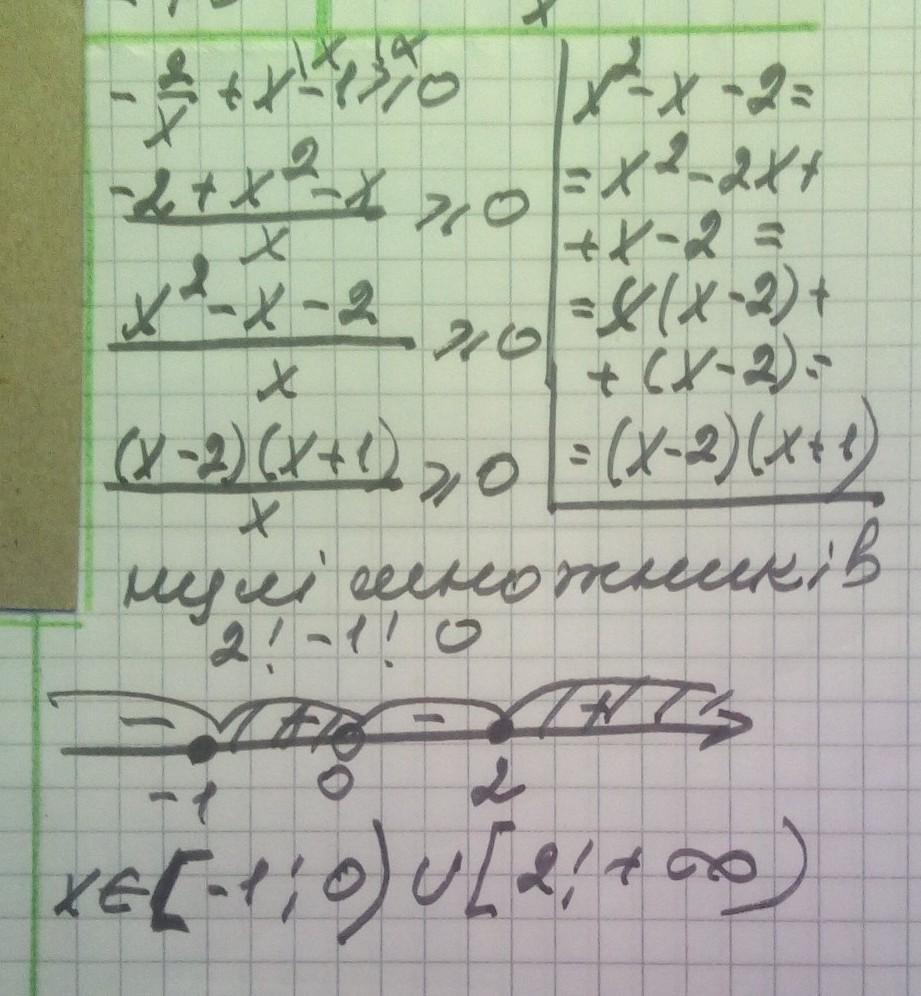 x
- 2/x + x\x - 1\x ≥ 0
(-2 + x² - x)/x ≥ 0
(x² - x - 2)/x ≥ 0
((x-2)(x+1))/x ≥ 0
x² - x - 2 =
= x² - 2x +
+ x - 2 =
= x(x-2) +
+ (x-2) =
= (x-2)(x+1)
нулі множників
2; -1; 0
- + - +
-1 0 2
x∈[-1; 0) ∪ [2; +∞)